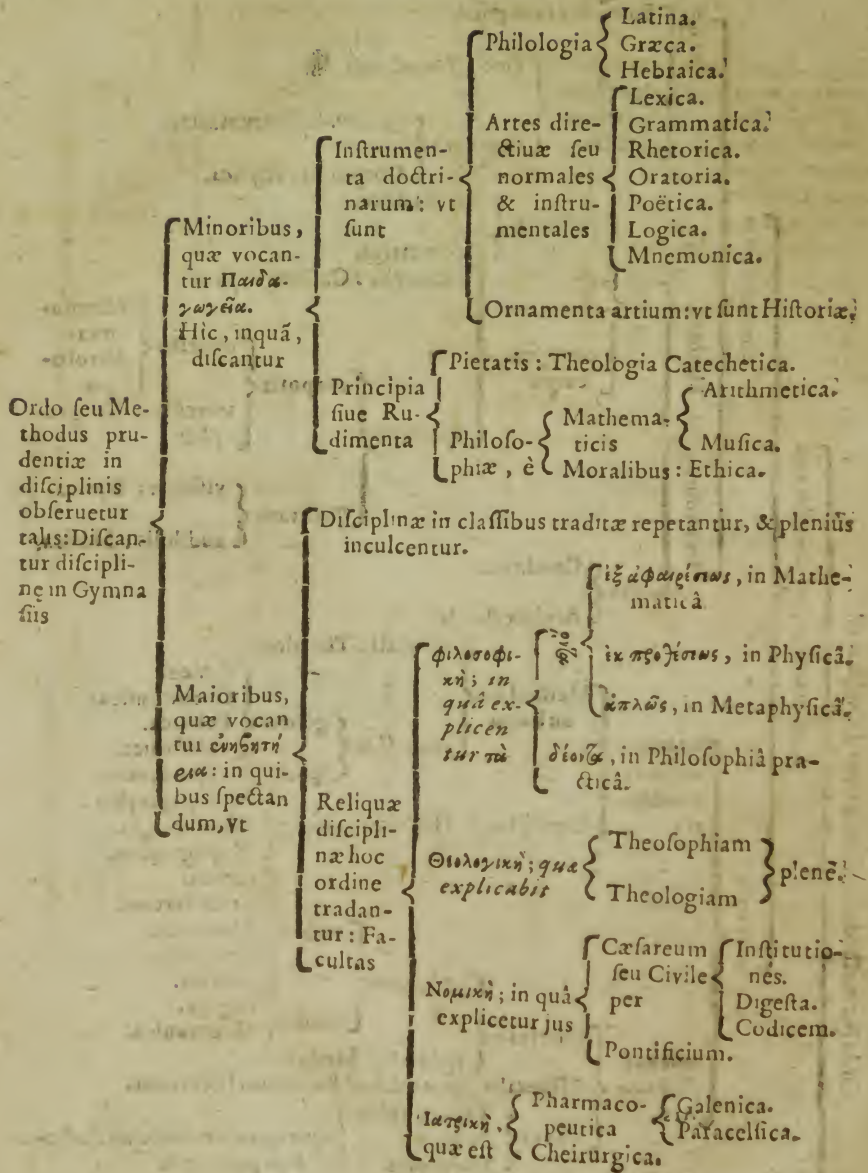 Ordo ſeu Me-
thodus pru-
dentiæ in
diſciplinis
obſeruetur
talis: Diſcan-
tur diſcipli-
nę in Gymna
ſiis
Minoribus,
quæ vocan-
tur Παιδα-
γωγεῖα.
Hîc, inquã,
diſcantur
Inſtrumen-
ta doctri-
narum: vt
ſunt
Philologia
Latina.
Græca.
Hebraica.
Artes dire-
ctiuæ ſeu
normales
& inſtru-
mentales
Lexica.
Grammatica.
Rhetorica.
Oratoria.
Poëtica.
Logica.
Mnemonica.
Ornamenta artium: vt ſunt Hiſtoriæ.
Principia
ſiue Ru-
dimenta
Pietatis: Theologia Catechetica.
Philoſo-
phiæ, è
Mathema-
ticis
Arithmetica.
Muſica.
Moralibus: Ethica.
Maioribus,
quæ vocan
tur
in qui-
bus ſpectan
dum, vt
Diſciplinæ in claſſibus traditæ repetantur, & pleniùs
inculcentur.
Reliquæ
diſcipli-
næ hoc
ordine
tradan-
tur: Fa-
cultas
φιλοσοφι-
κὴ; in
quâ ex-
plicen
tur τὰ
ἐξ ἀφαιρέσεως, in Mathe-
maticâ
ἐκ προσθέσεως, in Phyſicâ.
ἁπλῶς, in Metaphyſicâ.
δέοντα, in Philoſophiâ pra-
cticâ.
Θεολογικὴ; quæ
explicabit
Theoſophiam
Theologiam
plenè.
Νομικὴ; in quâ
explicetur jus
Cæſareum
ſeu Civile
per
Inſtitutio-
nes.
Digeſta.
Codicem.
Pontificium.
Ἰατρικὴ,
quæ eſt
Pharmaco-
peutica
Galenica.
Paracelſica.
Cheirurgica.